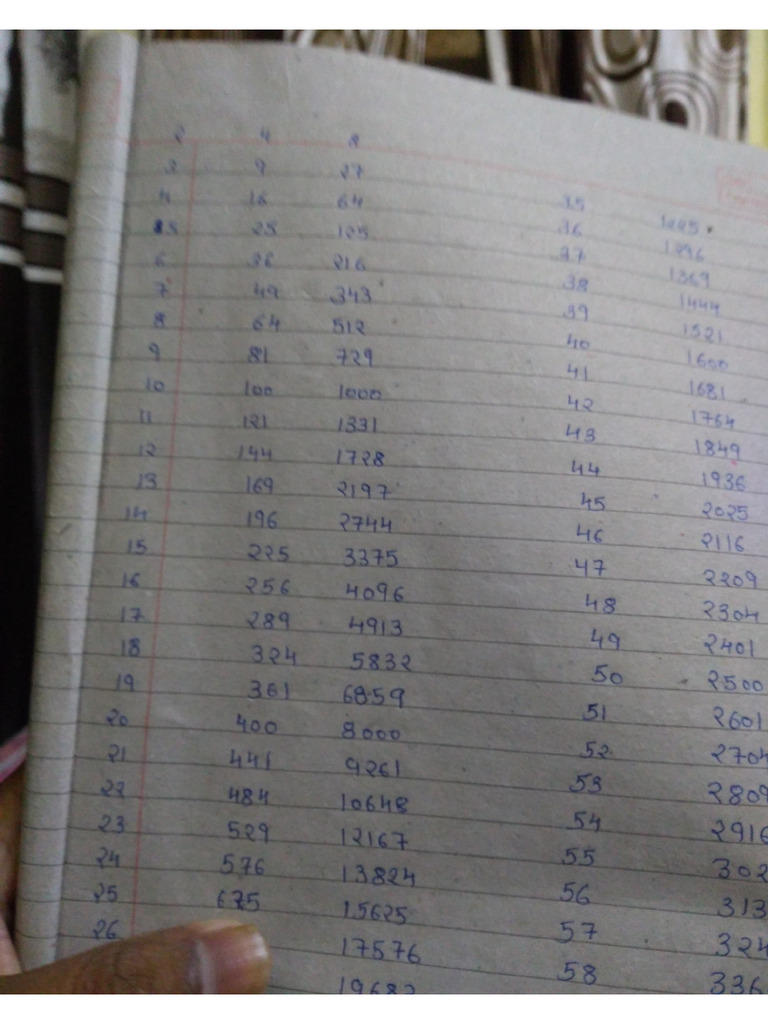 2 4 8
3 9 27
4 16 64
5 25 125
6 36 216
7 49 343
8 64 512
9 81 729
10 100 1000
11 121 1331
12 144 1728
13 169 2197
14 196 2744
15 225 3375
16 256 4096
17 289 4913
18 324 5832
19 361 6859
20 400 8000
21 441 9261
22 484 10648
23 529 12167
24 576 13824
25 675 15625
26 17576
19683
35 1225
36 1296
37 1369
38 1444
39 1521
40 1600
41 1681
42 1764
43 1849
44 1936
45 2025
46 2116
47 2209
48 2304
49 2401
50 2500
51 2601
52 2704
53 2809
54 2916
55 302
56 313
57 324
58 336